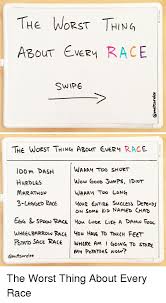 THE WORST THING
ABOUT EVERY RACE
SWIPE
@mattsurelee
THE WORST THING ABOUT EVERY RACE
100m DASH WAAAY TOO SHORT
HURDLES WOW GOOD JUMPS, IDIOT
MARATHON WAAAY TOO LONG
3-LEGGED RACE YOUR ENTIRE SUCCESS DEPENDS
ON SOME KID NAMED CHAD
EGG & SPOON RACE YOU LOOK LIKE A DAMN FOOL
WHEELBARROW RACE YOU HAVE TO TOUCH FEET
POTATO SACK RACE WHERE AM I GOING TO STORE
MY POTATOES NOW?
@mattsurelee
The Worst Thing About Every
Race